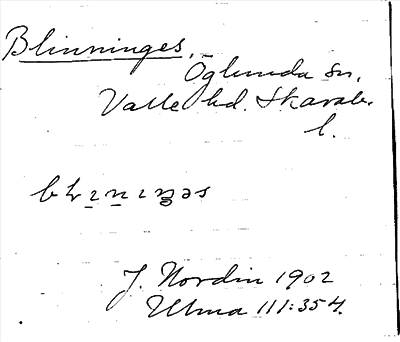 Blinninges,
Öglunda sn,
Valle hd. Skarab.
l.
J. Nordin 1902
Ulma 111:354.